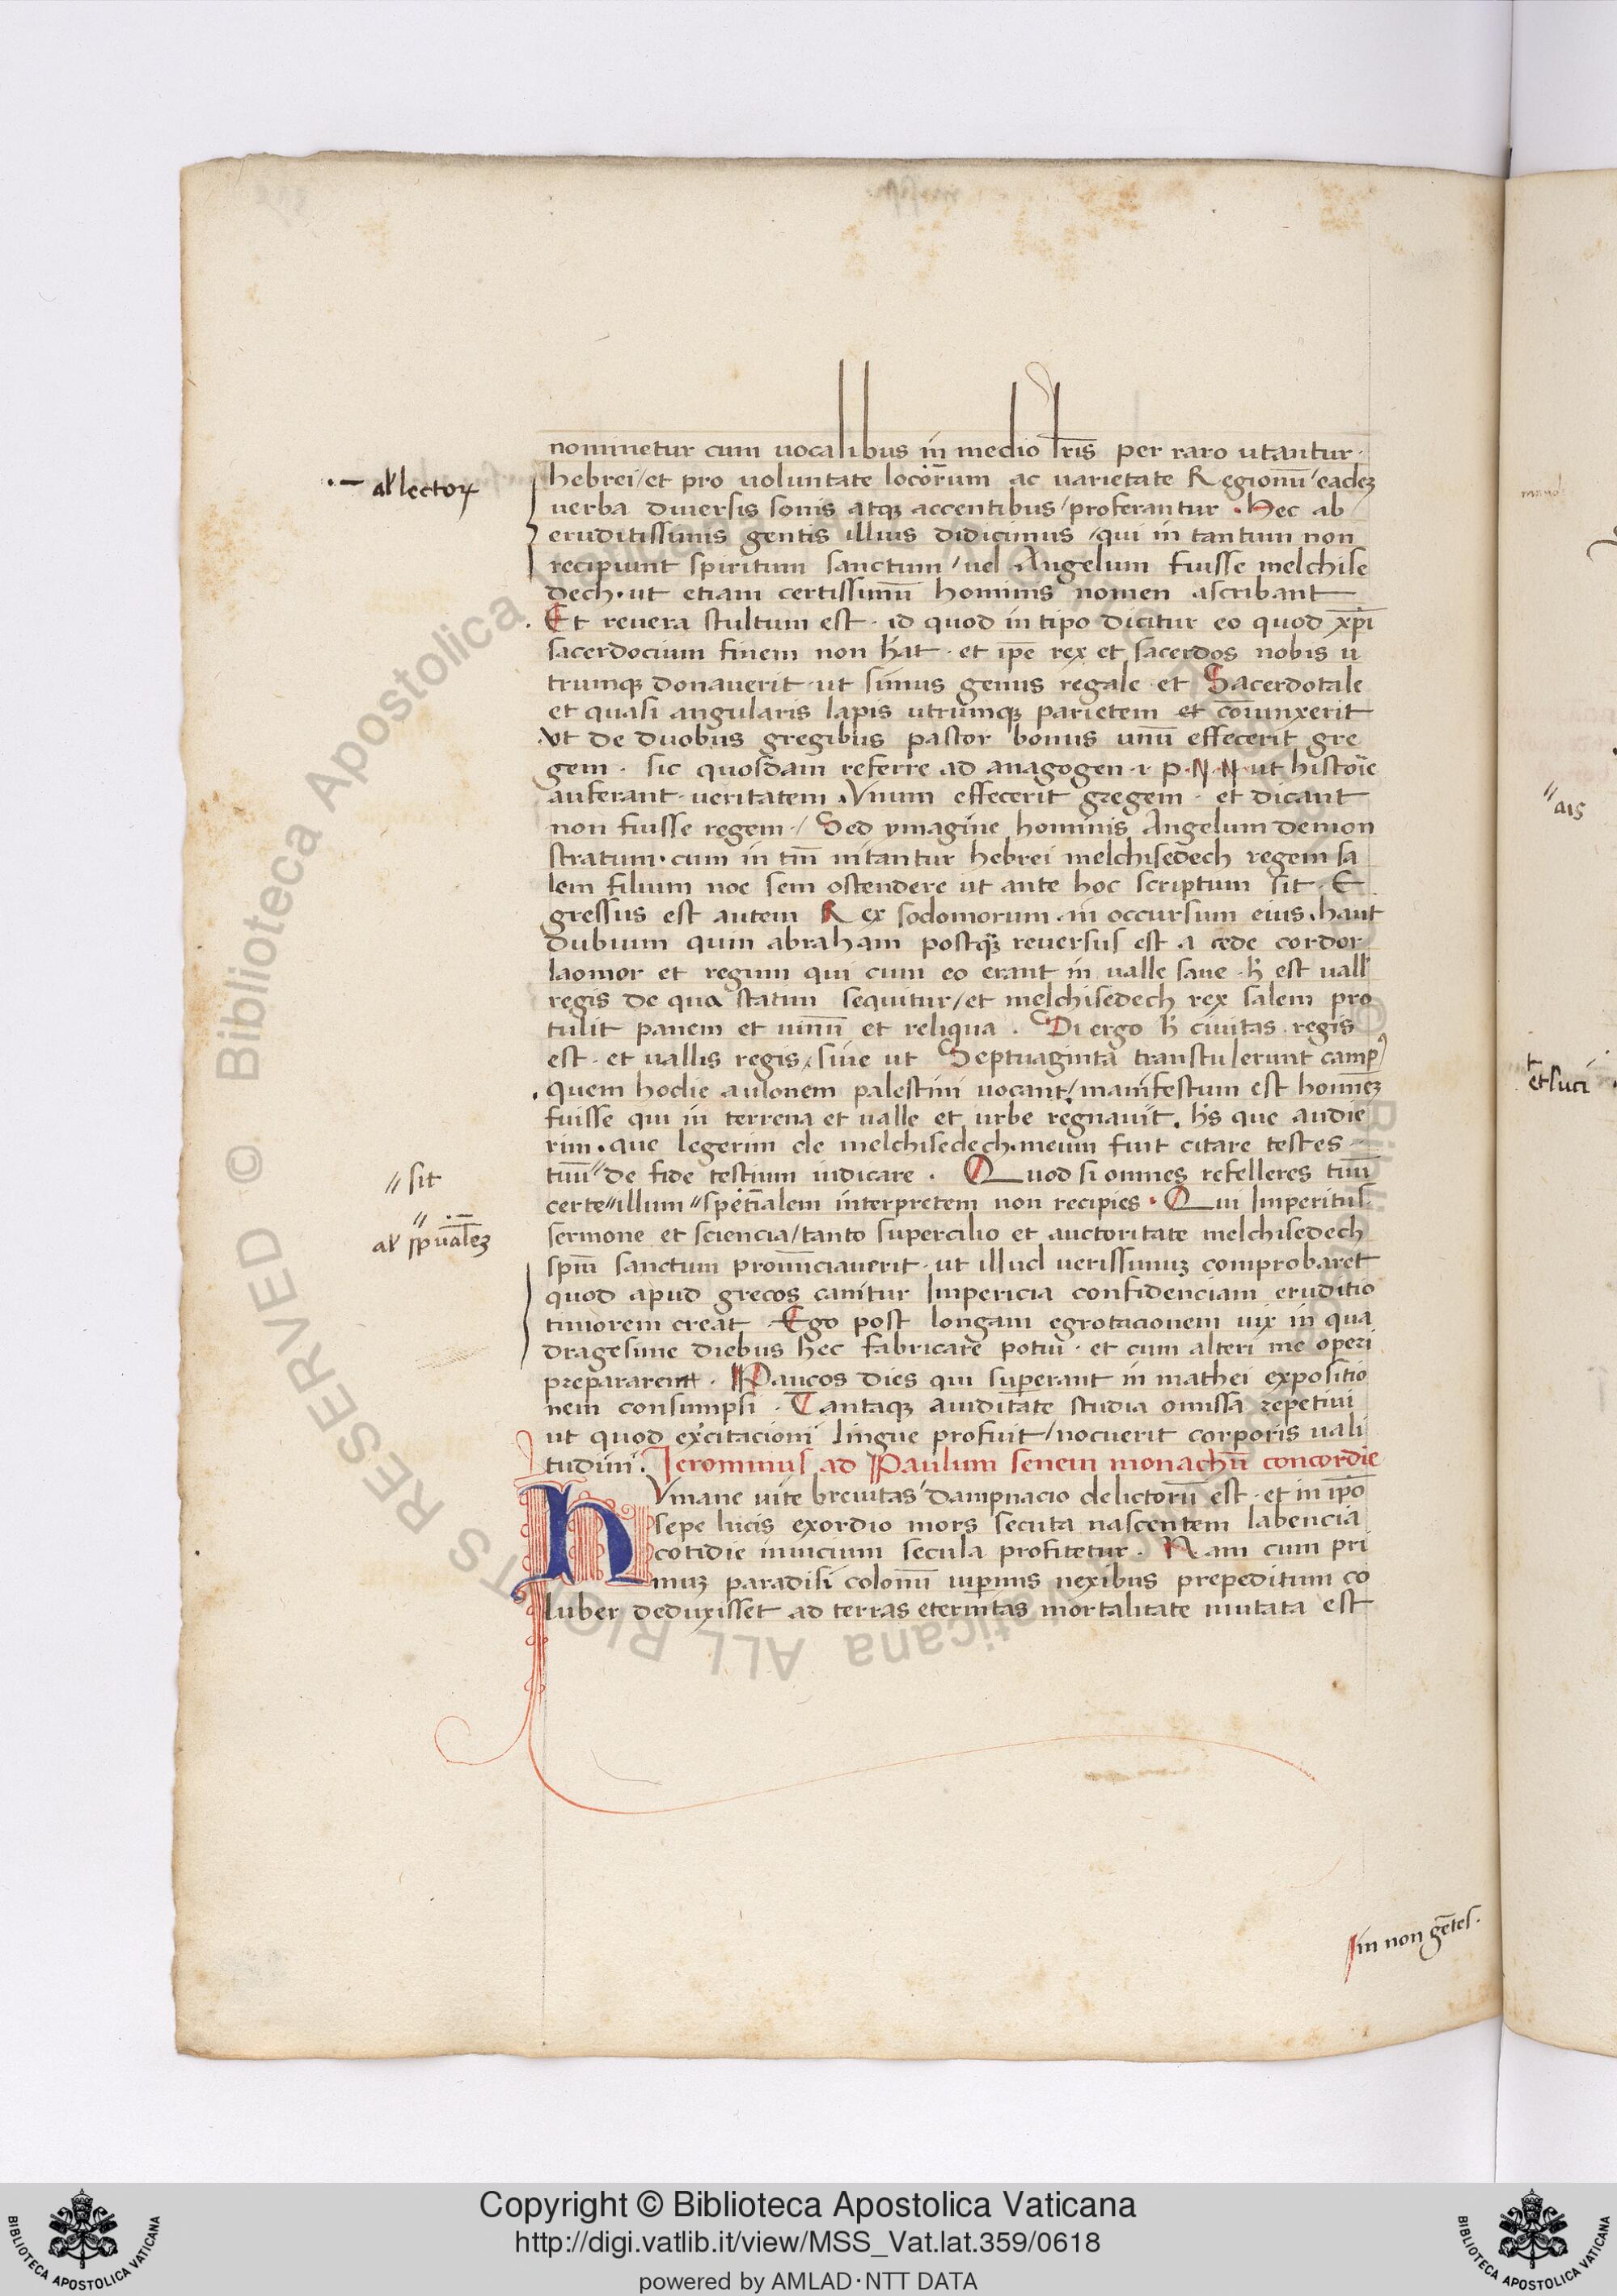 nominetur cum uocalibus in medio lr̄is per raro utantur ·
·– al' lectoꝝ
hebrei / et pro uoluntate locōrum ac uarietate Regionū / eadeꝫ
uerba diuersis sonis atqꝫ accentibus / proferantur · Hec ab
eruditissimis gentis illius didicimus / qui in tantum non
recipiunt spiritum sanctum / uel Angelum fuisse melchise
dech · ut etiam certissimū hominis nomen ascribant
Et reuera stultum est · id quod in tipo dicitur eo quod xp̄i
sacerdocium finem non h̄at · et ip̄e rex et sacerdos nobis u
trumqꝫ donauerit · ut simus genus regale · et Sacerdotale
et quasi angularis lapis utrumqꝫ parietem et cōiunxerit
Vt de duobus gregibus pastor bonus unū effecerit gre
gem · sic quosdam referre ad anagogen · r p · N · N · ut histoīe
auferant · ueritatem · Vnum effecerit gregem · et dicant
non fuisse regem · / Sed ymagine hominis Angelum demon
stratum · cum in tm̄ nitantur hebrei melchisedech regem sa
lem filium noe sem ostendere ut ante hoc scriptum sit · E
gressus est autem Rex sodomorum · in occursum eius · haut
dubium quin abraham postqꝫ reuersus est · a cede cordor
laomor et regum qui cum eo erant in ualle saue · h̄ est uall'
regis de qua statim sequitur / et melchisedech rex salem pro
tulit panem et uinū et reliqua · Si ergo h̄ ciuitas · regis
est · et uallis regis / siue ut Septuaginta transtulerunt campꝰ
quem hodie aulonem palestini uocant / manifestum est homineꝫ
fuisse qui in terrena et ualle et urbe regnauit · h̄s que audie
rim · que legerim de melchisedech · meum fuit citare testes
// sit
tuū // de fide testium iudicare · Quod si omnes refelleres tuū
certe // illum // spet̄ialem interpretem non recipies · Qui Imperitus
// ·–
al' sp̄ualeꝫ
sermone et sciencia / tanto supercilio et auctoritate melchisedech
spm̄ sanctum pronūciauerit · ut illud uerissimuꝫ comprobaret
quod apud grecos canitur Impericia confidenciam eruditio
timorem creat · Ego post longam egrotacionem uix in qua
dragesime diebus hec fabricare potui · et cum alteri me operi
prepararem · Paucos dies qui superant in mathei expositio
nem consumpsi · Tantaqꝫ auiditate studia omissa repetiui
ut quod excitacioni lingue profuit / nocuerit corporis uali
tudini · Ieronimus ad Paulum senem monachū concordie
hVmane uite breuitas / dampnacio delictorū est · et in ip̄o
sepe lucis exordio mors secuta nascentem labencia
cotidie inuicium secula profitetur · Nam cum pri
muꝫ paradisi colonū uiperinis nexibus prepeditum co
luber deduxisset ad terras eternitas mortalitate mutata est
in non gētes ·
// ais
et suci